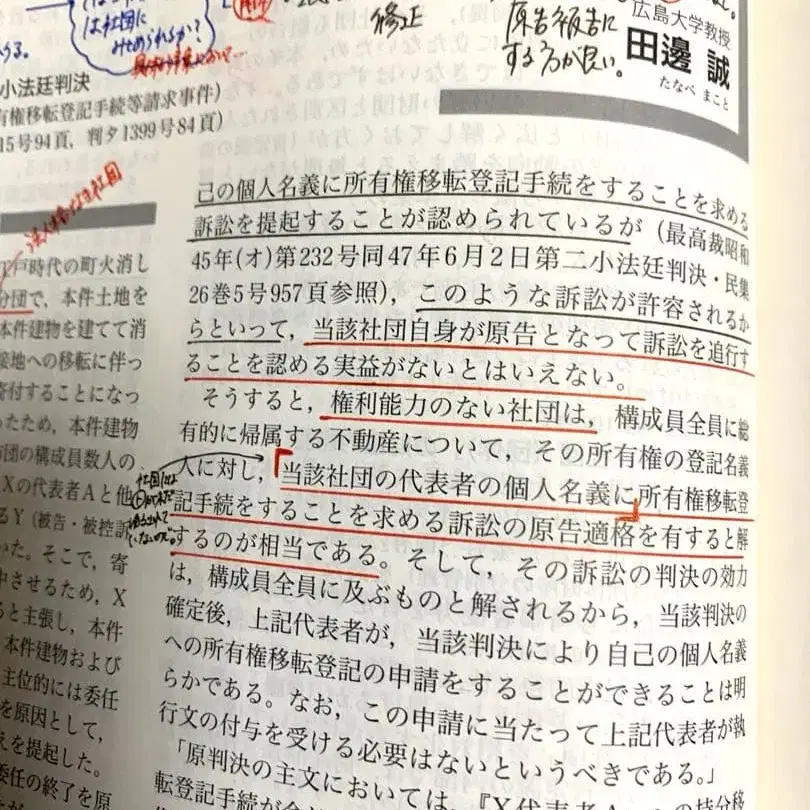 は社団に
みせめられるか?
修正
原告被告に
する方が良い。
広島大学教授
田邊 誠
たなべ まこと
小法廷判決
有権移転登記手続等請求事件)
15号94頁,判タ1399号84頁)
江戸時代の町火消し
分団で,本件土地を
本件建物を建てて消
接地への移転に伴っ
寄付することになっ
ったため,本件建物
団の構成員数人の
Xの代表者Aと他
るY(被告・被控訴
いた。そこで,寄
中させるため,X
ると主張し,本件
本件建物および
主位的には委任
を原因として,
えを提起した。
委任の終了を原
己の個人名義に所有権移転登記手続をすることを求める
訴訟を提起することが認められているが(最高裁昭和
45年(オ)第232号同47年6月2日第二小法廷判決・民集
26巻5号957頁参照),このような訴訟が許容されるか
らといって,当該社団自身が原告となって訴訟を追行す
ることを認める実益がないとはいえない。
そうすると,権利能力のない社団は,構成員全員に総
有的に帰属する不動産について,その所有権の登記名義
人に対し,当該社団の代表者の個人名義に所有権移転登
記手続をすることを求める訴訟の原告適格を有すると解
するのが相当である。そして,その訴訟の判決の効力
は,構成員全員に及ぶものと解されるから,当該判決の
確定後,上記代表者が,当該判決により自己の個人名義
への所有権移転登記の申請をすることができることは明
らかである。なお,この申請に当たって上記代表者が執
行文の付与を受ける必要はないというべきである。」
「原判決の主文においては,『X代表者A